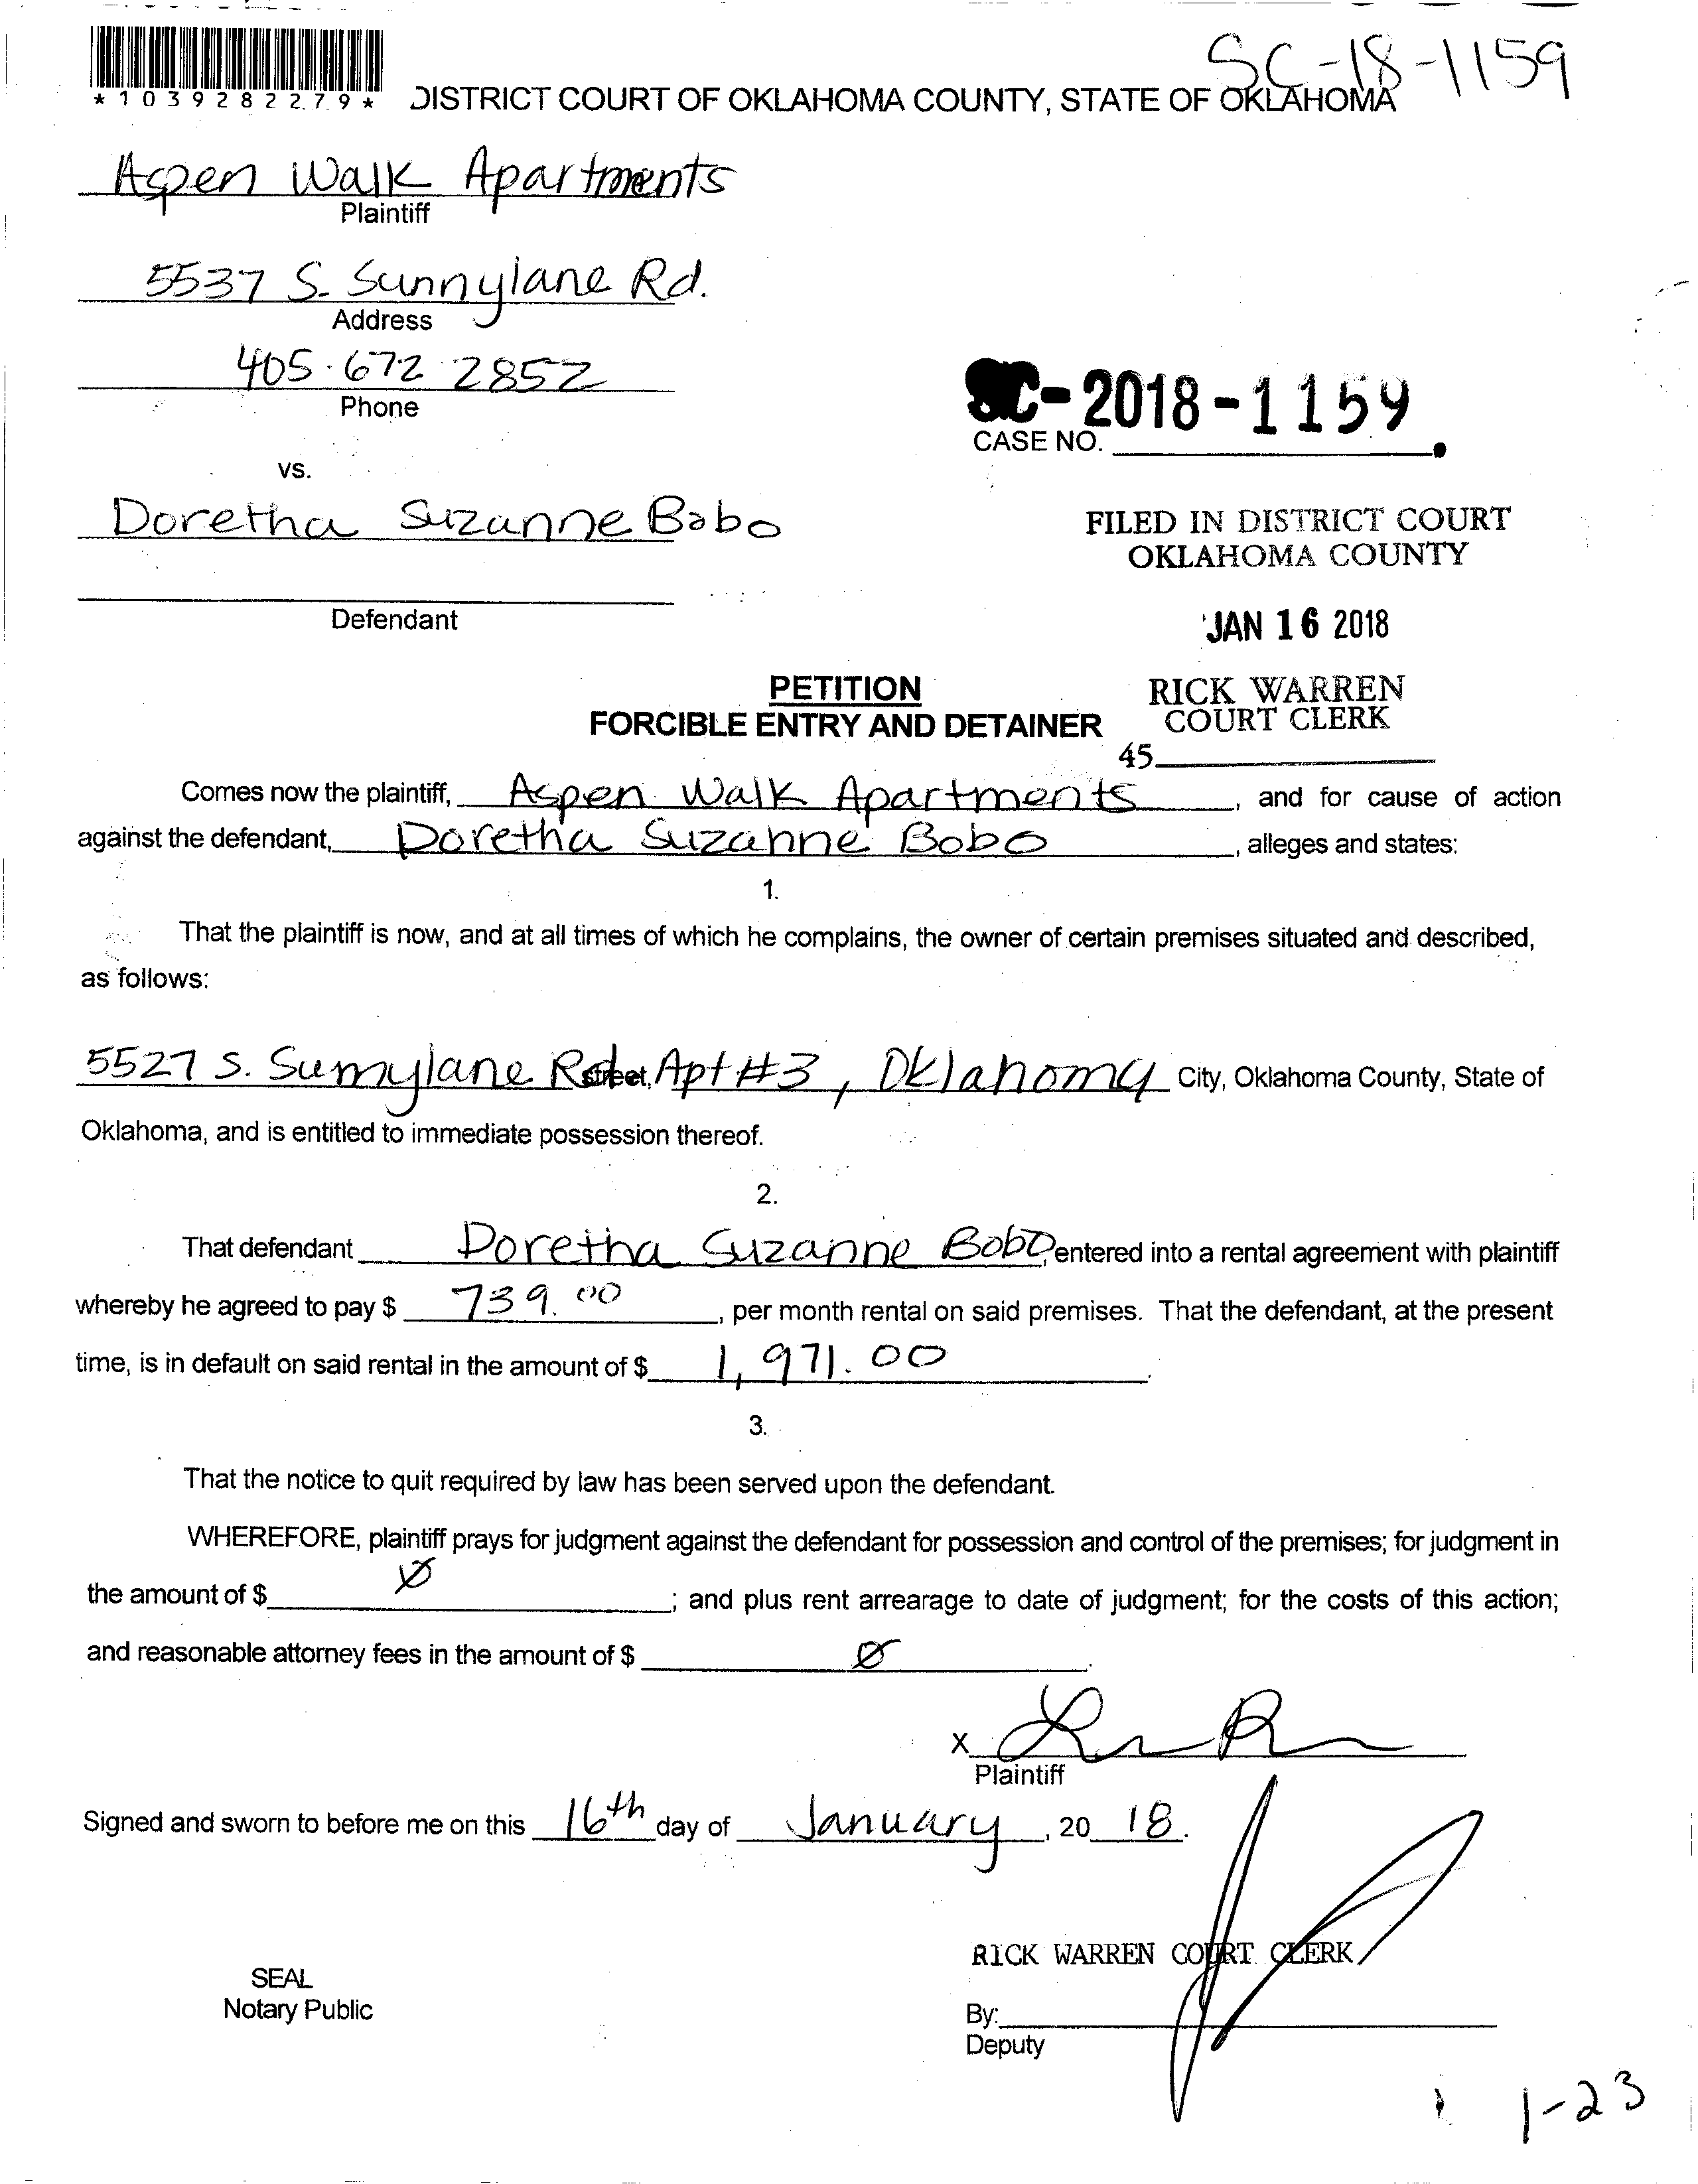 SC-18-1159
* 1 0 3 9 2 8 2 2 7 9 *
DISTRICT COURT OF OKLAHOMA COUNTY, STATE OF OKLAHOMA
Aspen Walk Apartments
Plaintiff
5537 S. Sunnylane Rd.
Address
405.672 2852
Phone
SC-2018-1159
CASE NO.
vs.
Doretha Suzanne Bobo
FILED IN DISTRICT COURT
OKLAHOMA COUNTY
Defendant
JAN 16 2018
PETITION
FORCIBLE ENTRY AND DETAINER
RICK WARREN
COURT CLERK
45
Comes now the plaintiff, Aspen Walk Apartments, and for cause of action
against the defendant, Doretha Suzanne Bobo, alleges and states:
1.
That the plaintiff is now, and at all times of which he complains, the owner of certain premises situated and described,
as follows:
5527 S. Sunnylane Rd Street, Apt #3, Oklahoma City, Oklahoma County, State of
Oklahoma, and is entitled to immediate possession thereof.
2.
That defendant Doretha Suzanne Bobo, entered into a rental agreement with plaintiff
whereby he agreed to pay $ 739.00, per month rental on said premises. That the defendant, at the present
time, is in default on said rental in the amount of $ 1,971.00.
3.
That the notice to quit required by law has been served upon the defendant.
WHEREFORE, plaintiff prays for judgment against the defendant for possession and control of the premises; for judgment in
the amount of $ Ø; and plus rent arrearage to date of judgment; for the costs of this action;
and reasonable attorney fees in the amount of $ Ø.
X
Plaintiff
Signed and sworn to before me on this 16th day of January, 20 18.
RICK WARREN COURT CLERK
SEAL
Notary Public
By:
Deputy
1-23